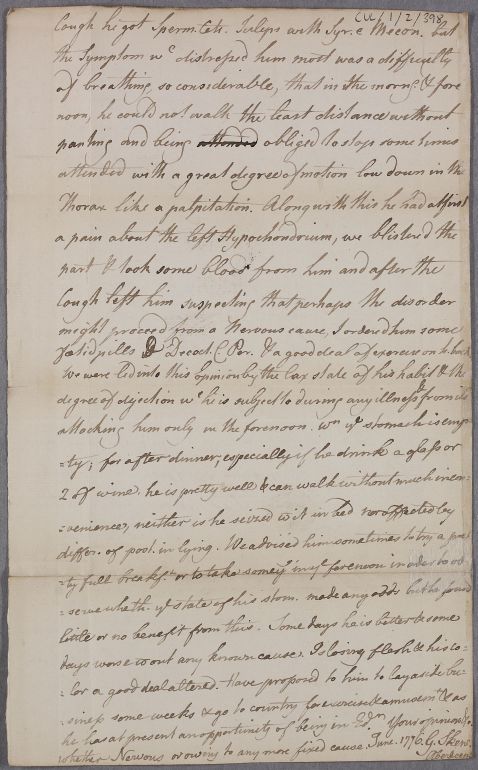 CUL/1/2/398
Cough he got Sperm. Ceti. Juleps with Syr. e Mecon. but
the Symptom wc distressed him most was a difficulty
of breathing, so considerable, that in the morng. & fore
noon, he could not walk the least distance without
panting and being attended obliged to stop some times
attended with a great degree of motion low down in the
Thorax like a palpitation. Along with this he had at first
a pain about the left Hypochondrium, we blistered the
part & took some blood from him and after the
Cough left him suspecting that perhaps the disorder
might proceed from a Nervous cause, I ordered him some
fœtid pills & Decoct. C. Per. & a good deal of exercise on h. back
We were led into this opinion by the lax state of his habit & the
degree of dejection wc he is subject to during any illness & from its
attacking him only in the forenoon. wn yt stomach is emp
-ty; for after dinner, especially if he drink a glass or
2 of wine. he is pretty well & can walk without much incon-
-venience, neither is he seized wt it in bed nor affected by
differ. of post. in lying. We advised him sometimes to try a pret
ty full breakft. or to take someth. in ye. forenoon in order to ob
-serve wheth. yt state of his stom. made any odds but he found
little or no benefit from this. Some days he is better & some
days worse wtout any known cause. Is losing flesh & his co-
-lor a good deal altered. Have proposed to him to lay aside bu-
-siness some weeks & go to country for exercise & amusemt. & as
he has at present an opportunity of being in Edr. your opinion &c
whether Nervous or owing to any more fixed cause. June. 1776. G. Skene.
Aberdeen